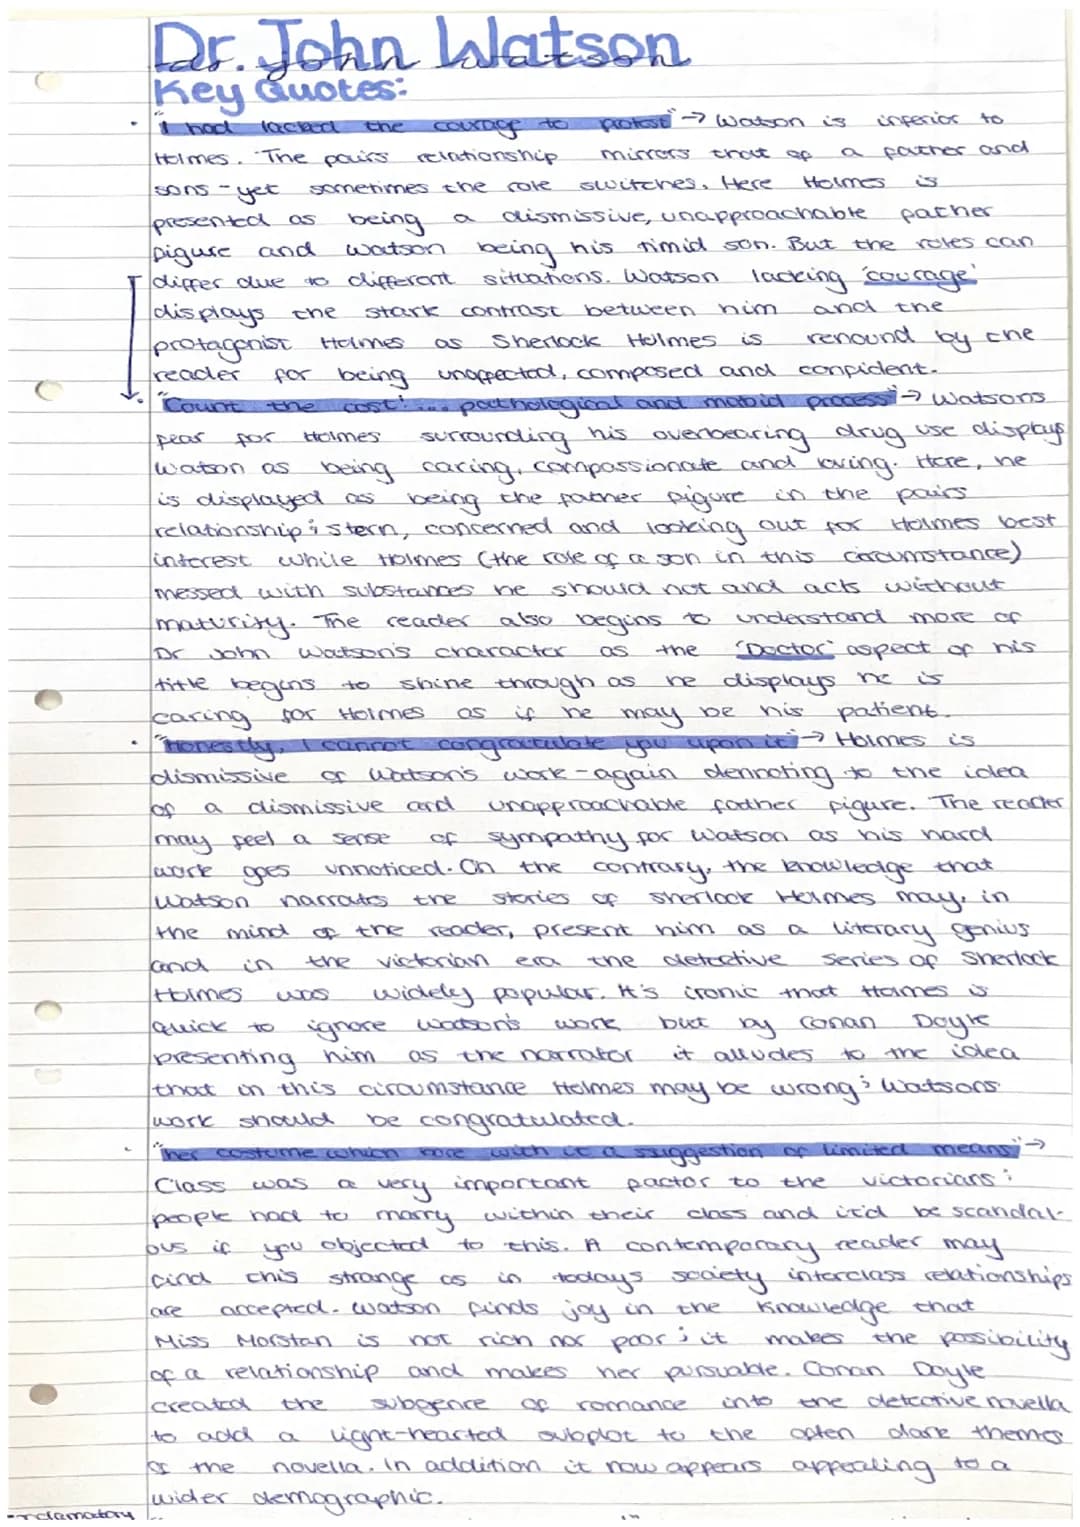 Dr. John Watson
dr. john watson
Key Quotes:
• "I had lacked the courage to protest" → Watson is inferior to
Holmes. The pairs relationship mirrors that of a father and
sons - yet sometimes the role switches. Here Holmes is
presented as being a dismissive, unapproachable father
figure and Watson being his timid son. But the roles can
differ due to different situations. Watson lacking 'courage'
displays the stark contrast between him and the
protagonist Holmes as Sherlock Holmes is renound by the
reader for being unaffected, composed and confident.
• "Count the cost! ... pathological and mobid process" → Watsons
fear for Holmes surrounding his overbearing drug use displays
Watson as being caring, compassionate and loving. Here, he
is displayed as being the father figure in the pairs
relationship; stern, concerned and looking out for Holmes best
interest while Holmes (the role of a son in this circumstance)
messed with substances he should not and acts without
maturity. The reader also begins to understand more of
Dr John Watson's character as the 'Doctor' aspect of his
title begins to shine through as he displays he is
caring for Holmes as if he may be his patient.
• "Honestly, I cannot congratulate you upon it" → Holmes is
dismissive of Watson's work - again dennoting to the idea
of a dismissive and unapproachable father figure. The reader
may feel a sense of sympathy for Watson as his hard
work goes unnoticed. On the contrary, the knowledge that
Watson narrates the stories of Sherlock Holmes may, in
the mind of the reader, present him as a literary genius
and in the victorian era the detective series of Sherlock
Holmes was widely popular. It's ironic that Holmes is
quick to ignore Watson's work but by Conan Doyle
presenting him as the narrator it alludes to the idea
that in this circumstance Holmes may be wrong; Watsons
work should be congratulated.
• "her costume which bore with it a suggestion of limited means" →
Class was a very important factor to the victorians;
people had to marry within their class and it'd be scandal-
ous if you objected to this. A contemporary reader may
find this strange as in todays society interclass relationships
are accepted. Watson finds joy in the knowledge that
Miss Morstan is not rich nor poor; it makes the possibility
of a relationship and makes her pursuable. Conan Doyle
created the subgenre of romance into the detective novella
to add a light-hearted subplot to the often dark themes
of the novella. In addition it now appears appealing to a
wider demographic.